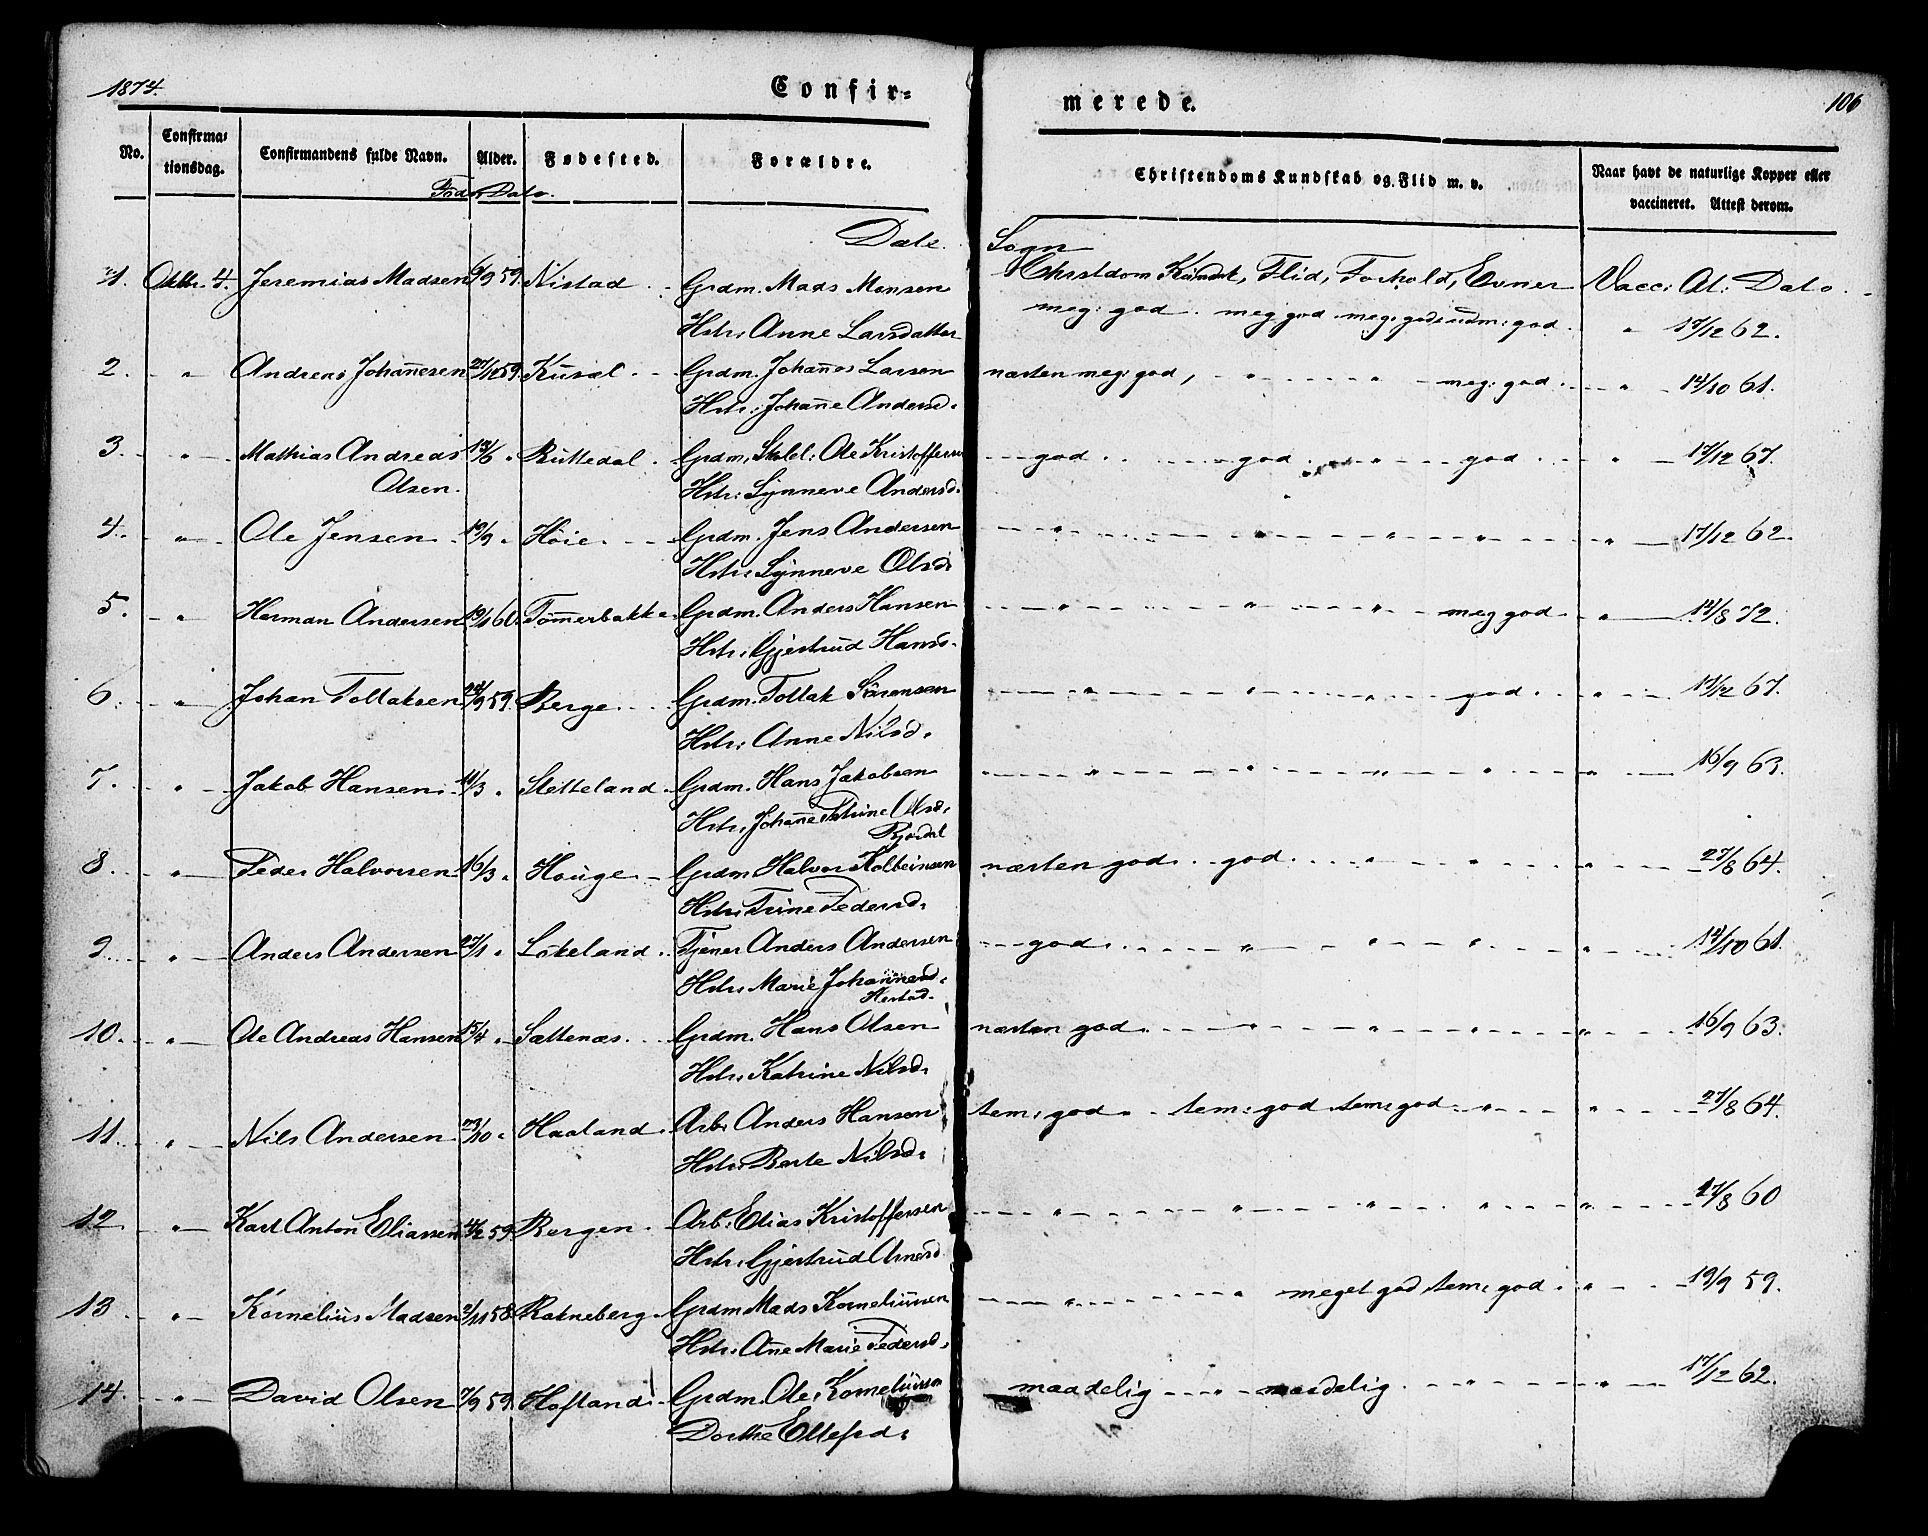 1874.
Confir=
merede.
106
No.
Confirma=
tionsdag.
Confirmandens fulde Navn.
Alder.
Fødested.
Forældre.
Christendoms Kundskab og Flid m. v.
Naar havt de naturlige Kopper eller
vaccineret. Attest derom.
Føde Dato.
Dale Sogn
Christdom Kundsk, Flid, Forhold, Evner Vacc: At: Dato
1. Oktbr. 4. Jeremias Madsen 6/9 59. Nistad Grdm. Mads Monsen
meg: god. meg god meg: god udm: god. " 17/12 62.
Hstr: Anne Larsdatter
2. " Andreas Johannesen 27/12 59. Grdm. Johannes Larsen næsten meg: god, " " meg: god. " 14/10 61.
Hstr: Johanne Andersd.
3. " Mathias Andreas " Ruttedal Grdm, Skoll: Ole Kristoffersen god god " god " 17/12 67.
Olsen. Hstr: Synneve Andersd.
4. " Ole Jensen 19/9 " Høie Grdm. Jens Andersen " " " " " 17/12 62.
Hstr: Synneve Olsd.
5. " Herman Andersen 19/1 60. Tømmerbakke Grdm. Anders Hansen " " " meg god " 14/8 72.
Hstr: Gjertrud Hansd.
6. " Johan Tollaksen 59. Berge Grdm. Tollak Sørensen " " " god " 17/12 67.
Hstr: Anne Nilsd.
7. " Jakob Hansen 11/3 " Stetteland Grdm. Hans Jakobsen " " " " " 16/9 63.
Hstr: Johanne Trine Olsd.
8. " Peder Halvorsen 16/3 " Houge Grdm Halvor Kolbeinsen næsten god god " " " 27/8 64.
Hstr: Trine Pedersd.
9. " Anders Andersen 27/1 " Løkeland Tjener Anders Andersen god " " " " 14/10 61.
Hstr: Marie Johannesd.
10. " Ole Andreas Hansen 15/4 " Sættenæs Grdm. Hans Olsen næsten god " " " " 16/9 63.
Hstr: Katrine Nilsd.
11. " Nils Andersen 23/10 " Haaland Arb: Anders Hansen tem: god tem: god tem: god " " 27/8 64.
Hstr: Berte Nilsd.
12. " Karl Anton Eliassen 4/2 59 Bergen Arb: Elias Kristoffersen " " " " " 27/8 60
Hstr: Gjertrud Arnesd
13. " Kornelius Madsen 2/11 58. Rakneberg Grdm Mads Korneliussen " " meget god tem: god " 19/9 59.
Hstr: Ane Marie Pedersd.
14. " David Olsen 7/9 59. Hofland Grdm. Ole Korneliussen maadelig " maadelig " " 17/12 62.
Dorthe Ellefsd.